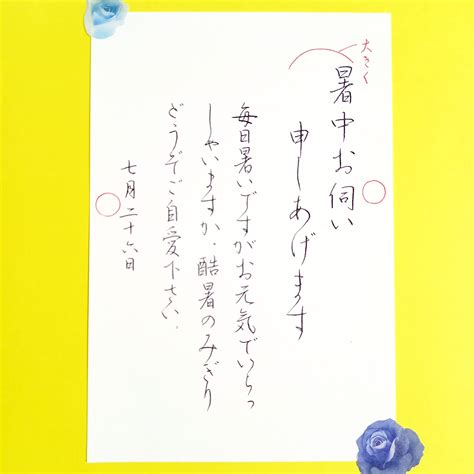 大きく
暑中お伺い
申しあげます
毎日暑いですがお元気でいらっ
しゃいますか。酷暑のみぎり
どうぞご自愛下さい。
七月二十六日